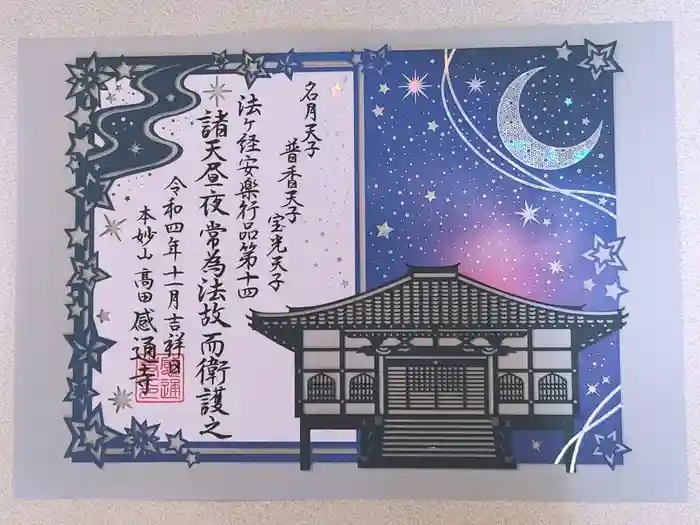 名月天子
普香天子
宝光天子
法ヶ経安樂行品第十四
諸天昼夜常為法故而衛護之
令和四年十一月吉祥日
本妙山高田感通寺